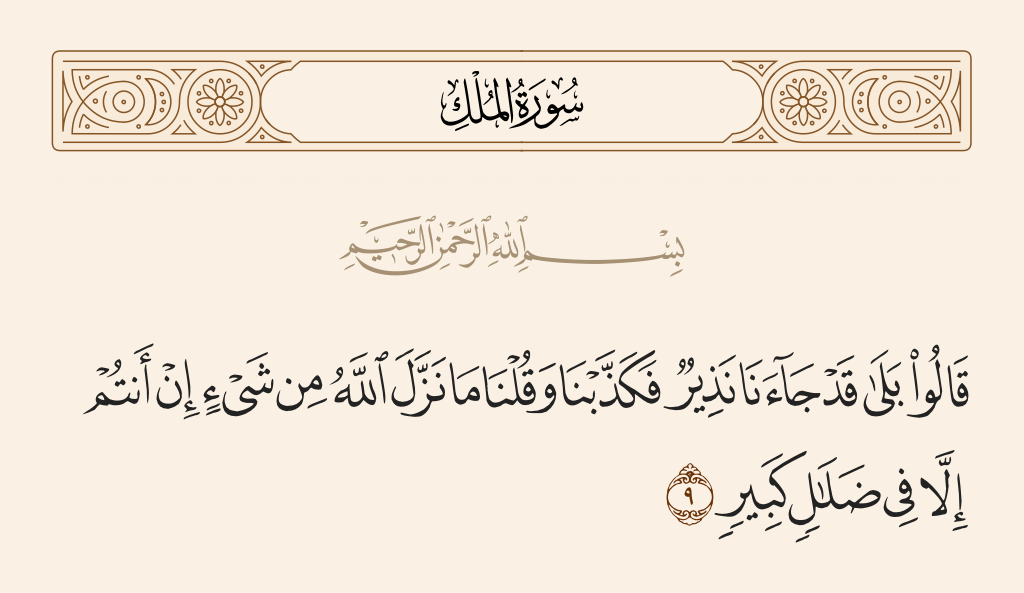 سُورَةُ المُلْكِ
بِسْمِ ٱللَّهِ ٱلرَّحْمَٰنِ ٱلرَّحِيمِ
قَالُوا۟ بَلَىٰ قَدْ جَآءَنَا نَذِيرٌ فَكَذَّبْنَا وَقُلْنَا مَا نَزَّلَ ٱللَّهُ مِن شَىْءٍ إِنْ أَنتُمْ
إِلَّا فِى ضَلَـٰلٍ كَبِيرٍ ٩